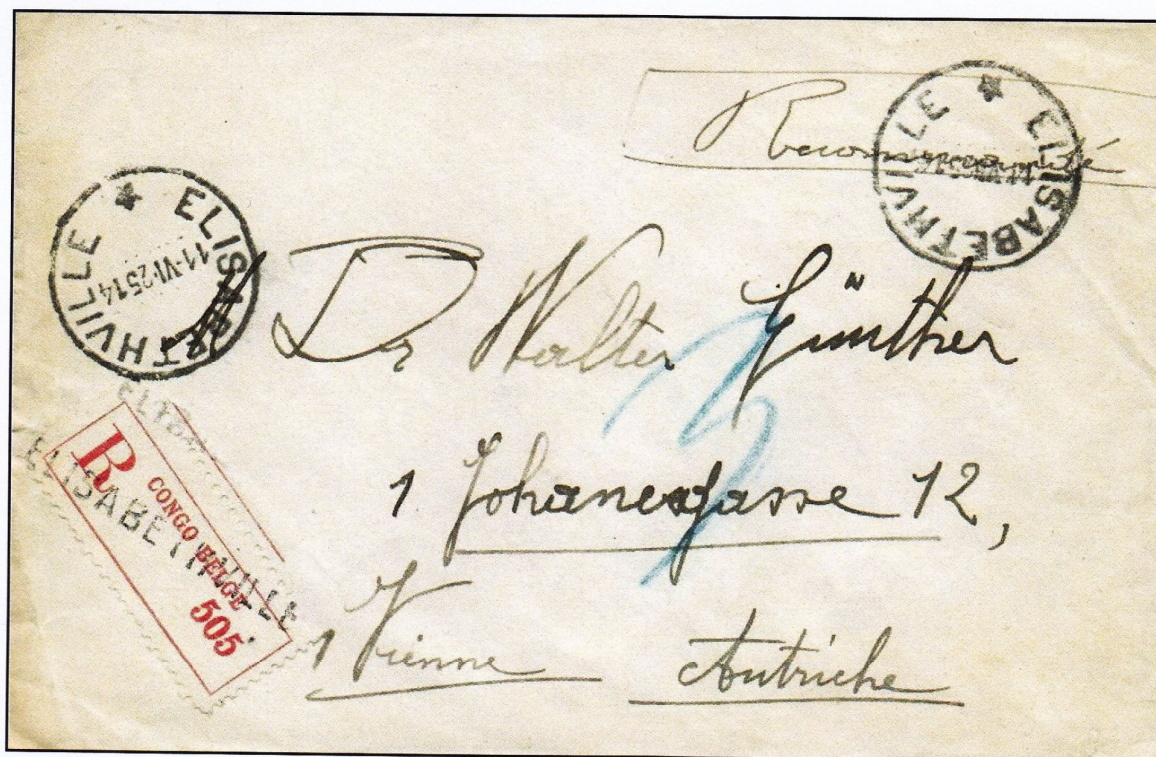 Recommandé
ELISABETHVILLE
ELISABETHVILLE
11-VI-25 14
Dr Walter Günther
1 Johanesgasse 12,
1 Vienne Autriche
R
CONGO BELGE
505
ELISABETHVILLE
3